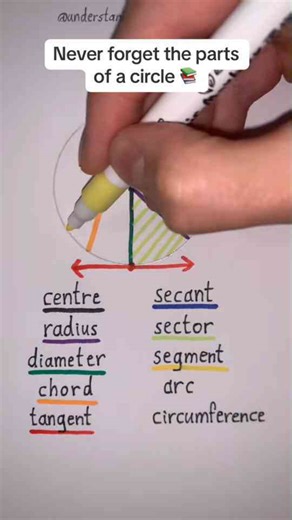 @understan
Never forget the parts
of a circle 📚
centre
secant
radius
sector
diameter
segment
chord
arc
tangent
circumference